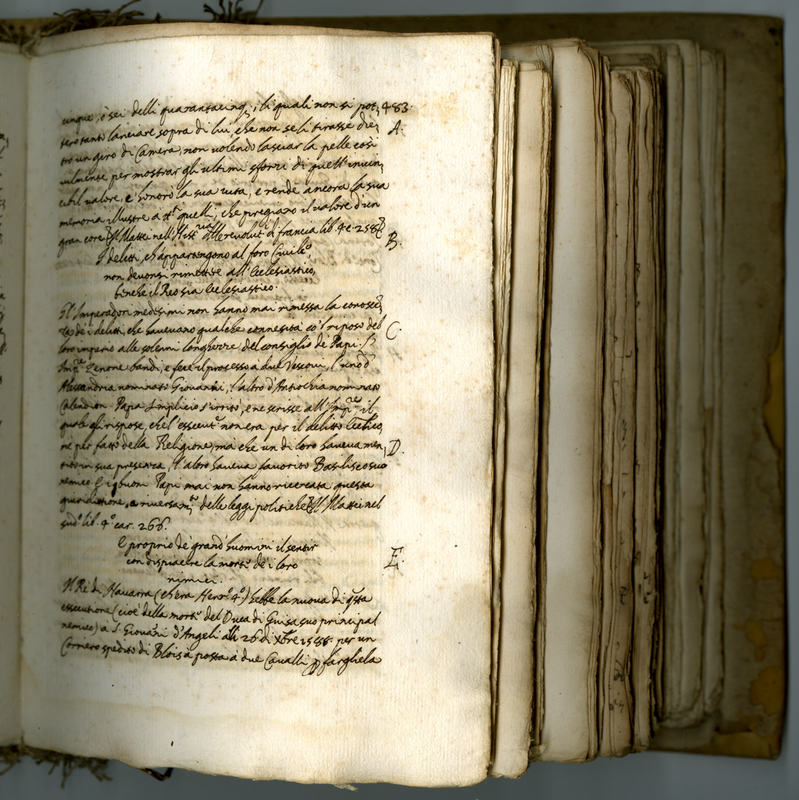 cinque, ò sei delli quarantacinq;, li quali non si pot, 483.
tero tanti lanciare sopra di lui, che non se li tirasse die, A.
tro un giro di Camera, non volendo lasciar la pelle così
vilmente per mostrar gli ultimi sforzi di quell'invin,
cibil valore, e' honorò la sua vita, e rende ancora la sua
memoria illustre a quelli, che pregiano il valore d'un
gran core Il Mattei nell'Hist. delle revolut. di francia lib. 4. c. 258. B.
I delitti, ch'appartengono al foro Civile,
non devonsi rimettere all'Ecclesiastico,
benche il Reo sia Ecclesiastico.
Gl'Imperadori medesimi non hanno mai rimessa la conosce,
za de i delitti, che havevano qualche connessità co'l riposo del C.
loro imperio alle solenni longherie del consiglio de Papi. L'
Imp.re Zenone bandì, e fece il processo a due Vescovi, l'uno d'
Alessandria nominato Giovanni, l'altro d'Antiochia nominato
Calendion. Papa Simplicio s'irritò, e ne scrisse all'Imp.re il
quale gli rispose, che l'essecut.e non era per il delitto
ne per fatto della Religione, ma che un di loro haveva men, D.
tito in sua presenza, l'altro haveva favorito Basilisco suo
nemico. G'i buoni Papi mai non hanno ricercata questa
giuriditione, a riversam.to delle leggi politiche Il Mattei nel
sud.o lib. 4.o car. 266.
È proprio de grand'huomini il sentir
con dispiacere la morte de i loro E.
nimici.
Il Re di Navarra (ch'era Henr.o 4.o) hebbe la nuova di q.sta
essecutione (cioè della morte del Duca di Guisa suo principal
nemico) à S. Giovani d'Angeli alli 26 di Xbre 1588. per un
Corriero spedito di Blois à posta à due Cavalli farghela